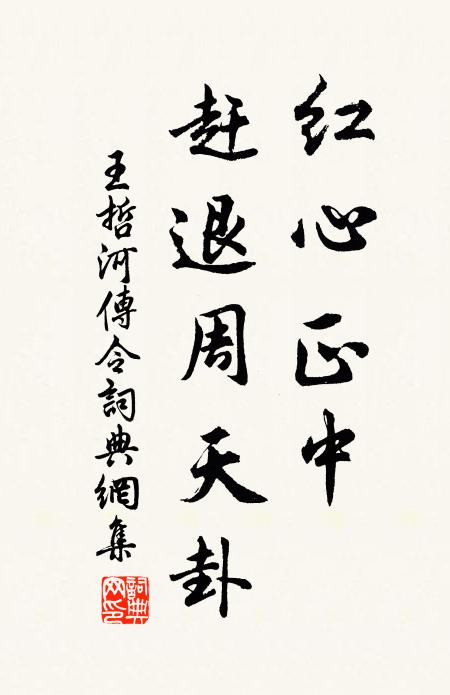 红心正中
赶退周天卦
王哲河傳令詞典網集
詞典网印